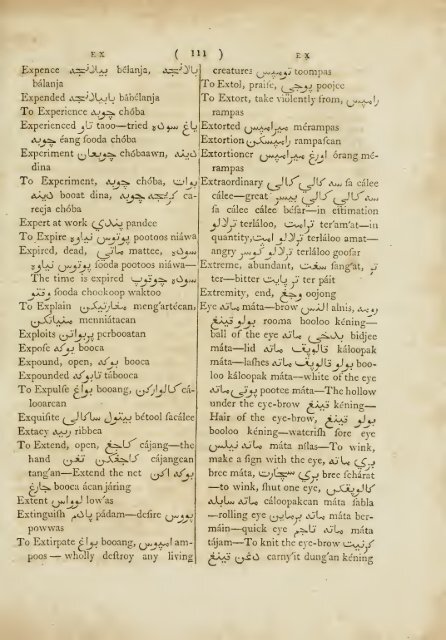 EX ( 111 ) EX
Expence بيلانجه bélanja, بالانجه
bálanja
Expended ببيلانجه bábélanja
To Experience چوبه chóba
Experienced تاو taoo—tried سوده ياغ
چوبه éang fooda chóba
Experiment چوبعاون chóbaawn, دينه
dina
To Experiment, چوبه chóba, بوات
دينه booat dina, كريجه چوبه ca-
reeja chóba
Expert at work پندي pandee
To Expire پوتوس نياوه pootoos niáwa
Expired, dead, ماتي mattee, سوده
پوتوس نياوه fooda pootoos niáwa—
The time is expired سوده چوكوپ
وقتو fooda chookoop waktoo
To Explain مغارتيكن meng'artécan,
منياتاكن menniátacan
Exploits پربواتن perbooatan
Expose بوك booca
Expound, open, بوك booca
Expounded تابوك tábooca
To Expulse بواغ booang, كالوارکن cá-
looarcan
Exquisite بيتول سكالي bétool facálee
Extacy ريب ribbca
To Extend, open, كاجغ cájang—the
hand كاجغكن تاغن cájangcan
tang'an—Extend the net بوك اكن
جارغ booca ácan járing
Extent لوواس low'as
Extinguish پادم pádam—desire پووس
powwas
To Extirpate بواغ booang, امپوس am-
poos — wholly destroy any living
creatures تومپس toompas
To Extol, praise, پوجي poojee
To Extort, take violently from, رامپس
rampas
Extorted ميرامپس mérampas
Extortion رامپسكن rampafcan
Extortioner اورغ ميرامپس órang mé-
rampas
Extraordinary سه كالي كالي fa cálee
cálee—great سه كالي كالي بيسر
fa cálee cálee béfar—in estimation
ترلالو terláloo, ترامت ter'am'at—in
quantity, ترلالو امت terláloo amat—
angry ترلالو گوسر terláloo goofar
Extreme, abundant, سغت fang'at, تر
ter—bitter تر پايت ter páit
Extremity, end, وجغ oojong
Eye مات máta—brow النس alnis, رومه
بولو كينغ rooma booloo kéning—
ball of the eye بدجي مات bidjee
máta—lid كالوپق مات káloopak
máta—lashes بولو كالوپق مات boo-
loo káloopak máta—white of the eye
پوتي مات pootee máta—The hollow
under the eye-brow كينغ kéning—
Hair of the eye-brow, بولو كينغ
booloo kéning—waterish sore eye
مات نيلس máta nílas—To wink,
make a sign with the eye, بري مات
bree máta, بري سيحارت bree fehárat
—to wink, shut one eye, كالوپقكن
مات سابله cáloopakcan máta fabla
—rolling eye مات برماين máta ber-
máin—quick eye مات تاجم máta
tájam—To knit the eye-brow كرنيت
دغن كينغ carny'it dung'an kéning